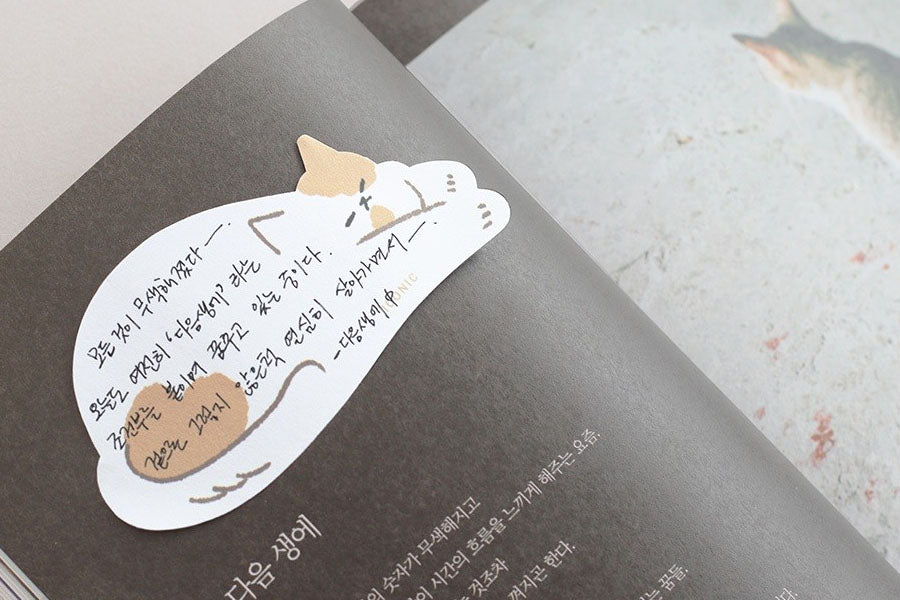 모든 것이 무색해졌다 —.
오늘도 여전히 '다음생에' 라는
조건부를 붙이며 꿈꾸고 있는 중이다.
겉으론 그렇지 않은척 열심히 살아가면서—.
-다음생에 中
ICONIC
다음 생에
의 숫자가 무색해지고
이 시간의 흐름을 느끼게 해주는 요즘.
것조차
한다.
는 꿈들.
다.